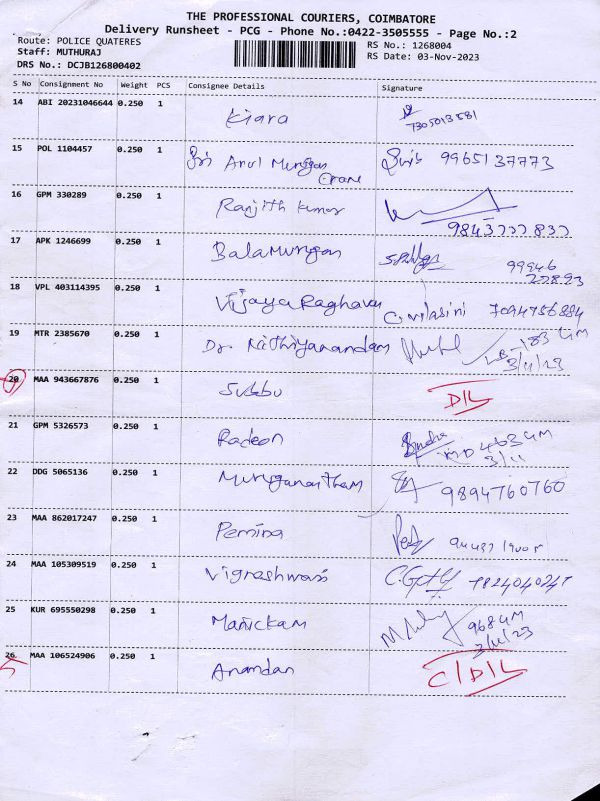 THE PROFESSIONAL COURIERS, COIMBATORE
Delivery Runsheet - PCG - Phone No.:0422-3505555 - Page No.:2
Route: POLICE QUATERES
RS No.: 1268004
Staff: MUTHURAJ
RS Date: 03-Nov-2023
DRS No.: DCJB126800402
S No Consignment No Weight PCS Consignee Details Signature
14 ABI 20231046644 0.250 1 Kiara 7305013581
15 POL 1104457 0.250 1 Sri Arul Murugan Crane 9965137773
16 GPM 330289 0.250 1 Ranjith Kumar 9843777837
17 APK 1246699 0.250 1 Balamurugan 99946
22893
18 VPL 403114395 0.250 1 Vijaya Raghavan C. vilasini 7094756884
19 MTR 2385670 0.250 1 Dr. Nithiyanandam 183 GM
3/11/23
20 MAA 943667876 0.250 1 Subbu D/L
21 GPM 5326573 0.250 1 Radeon MD 463 GM
3/11
22 DDG 5065136 0.250 1 Muruganantham 9894760760
23 MAA 862017247 0.250 1 Pemina
24 MAA 105309519 0.250 1 Vigneshwari
25 KUR 695550298 0.250 1 Manickam 968 GM
3/11/23
26 MAA 106524906 0.250 1 Anandan C/D/L